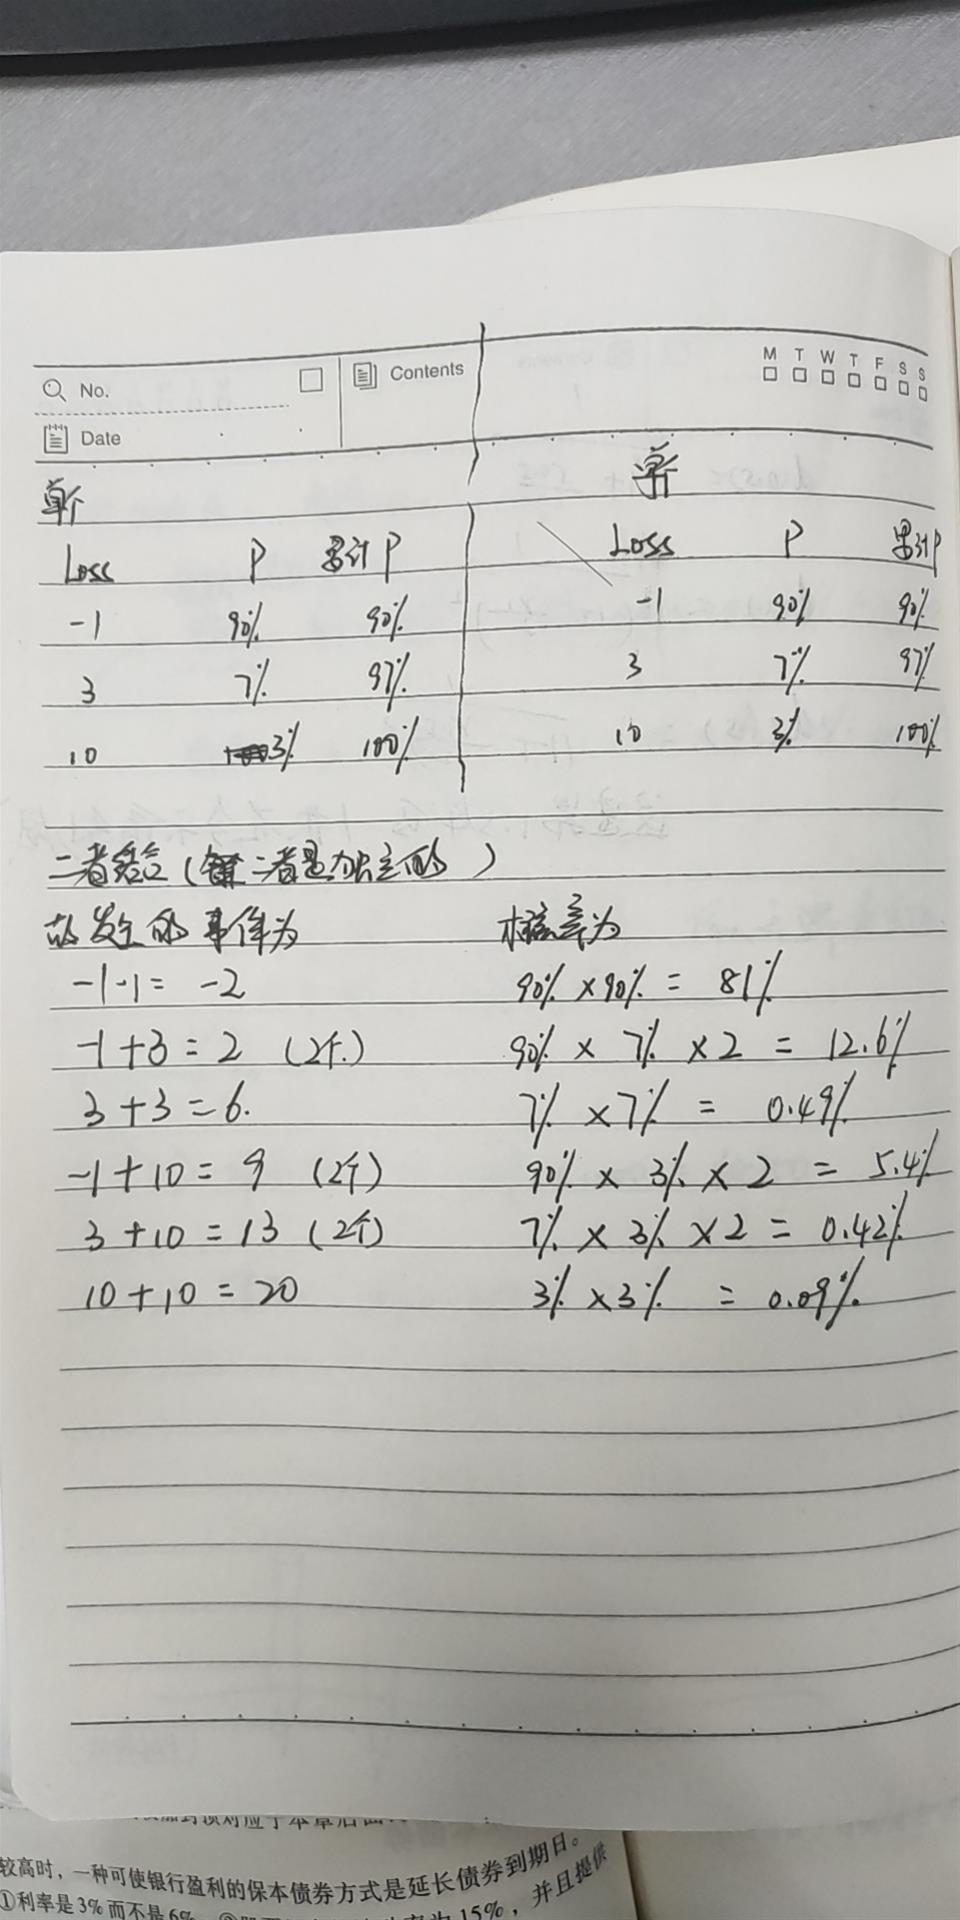 No.
Contents
M T W T F S S
Date
单个
单个
Loss P 累计P
Loss P 累计P
-1 90% 90%
-1 90% 90%
3 7% 97%
3 7% 97%
10 3% 100%
10 3% 100%
二者结合( 二者是独立的 )
故发生的事件为 概率为
-1-1= -2 90% ×90% = 81%
-1+3=2 (2个) 90% × 7% ×2 = 12.6%
3+3=6. 7% ×7% = 0.49%
-1+10= 9 (2个) 90% × 3% ×2 = 5.4%
3+10=13 (2个) 7% × 3% ×2 = 0.42%
10+10=20 3% ×3% = 0.09%
较高时,一种可使银行盈利的保本债券方式是延长债券到期日。
①利率是3%而不是6%
15%,并且提供